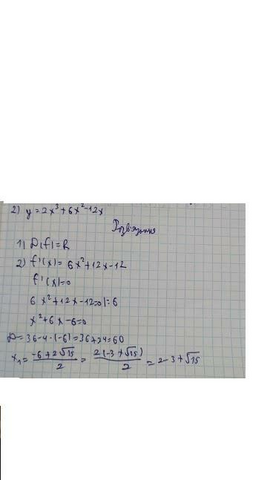 2) y = 2x³ + 6x² - 12x
Розв'язання
1) D(f) = R
2) f'(x) = 6x² + 12x - 12
f'(x) = 0
6x² + 12x - 12 = 0 | = 6
x² + 6x - 6 = 0
D = 36 - 4 · (-6) = 36 + 24 = 60
x₁ = (-6 + 2√15)/2 = 2(-3 + √15)/2 = 2 - 3 + √15